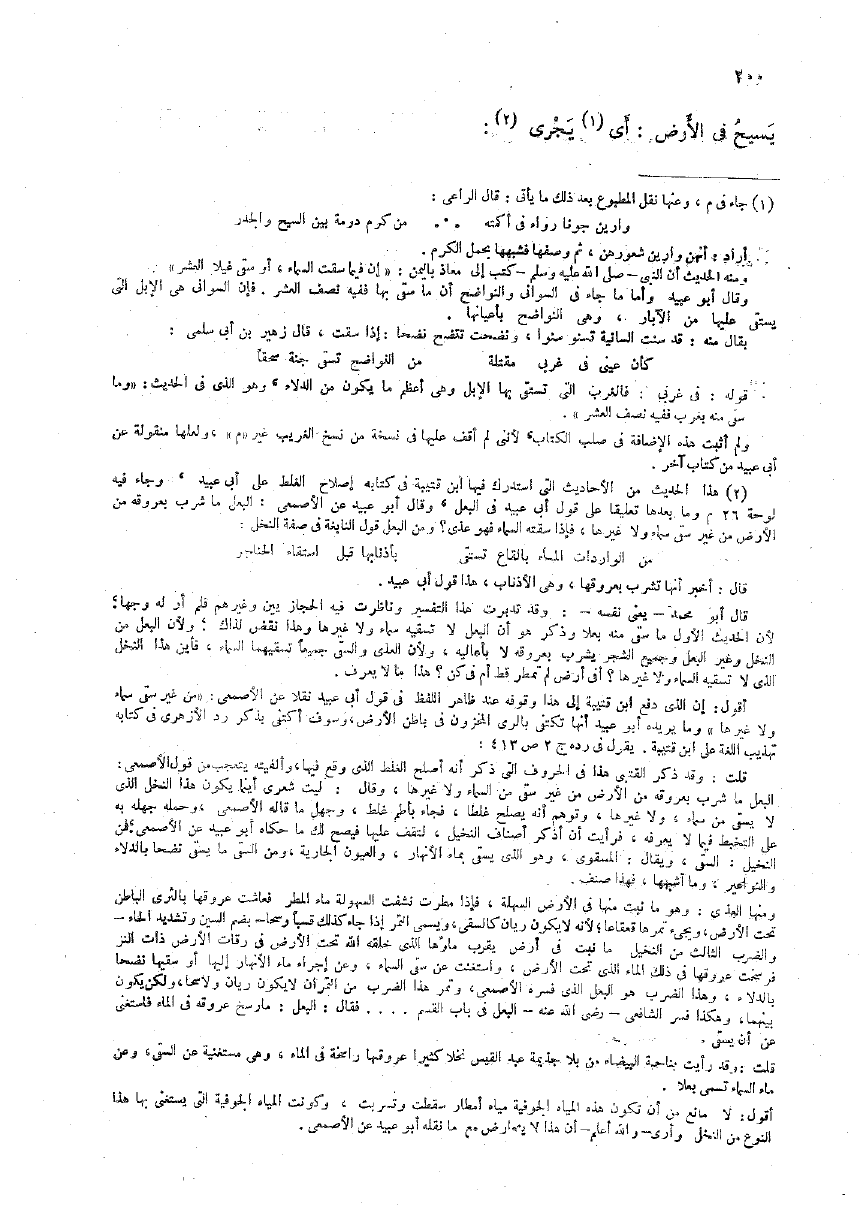 ٢٠٠
يَسيحُ فى الأَرض : أَى (١) يَجْرى (٢) :
(١) جاء فى م ، وعنها نقل المطبوع بعد ذلك ما يأتى : قال الراعى :
وارين جونا رواء فى أكمته ٠٠٠ من كرم دومة بين السيح والجدر
أراد : أنهن وارين شعورهن ، ثم وصفها فشبهها بحمل الكرم .
ومنه الحديث أن النبى – صلى الله عليه وسلم – كتب إلى معاذ باليمن : « إن فيما سقت السماء ، أو سقى غيلا العشر »
وقال أبو عبيد وأما ما جاء فى السوانى والنواضح أن ما سقى بها ففيه نصف العشر . فإن السوانى هى الإبل التى
يستقى عليها من الآبار ، وهى النواضح بأعيانها .
يقال منه : قد سنت السانية تسنو سنوا ، ونضحت تنضح نضحا : إذا سقت ، قال زهير بن أبى سلمى :
كأن عينى فى غربى مقتلة من النواضح تسقى جنة سحقا
قوله : فى غربى : فالغرب التى تستقى بها الإبل وهى أعظم ما يكون من الدلاء ، وهو الذى فى الحديث : «وما
سقى منه بغرب ففيه نصف العشر » .
ولم أثبت هذه الإضافة فى صلب الكتاب ، لأننى لم أقف عليها فى نسخة من نسخ الغريب غير «م» ، ولعلها منقولة عن
أبى عبيد من كتاب آخر .
(٢) هذا الحديث من الأحاديث التى استدرك فيها ابن قتيبة فى كتابه إصلاح الغلط على أبى عبيد ، وجاء فيه
لوحة ٢٦ م وما بعدها تعليقا على قول أبى عبيد فى البعل ، وقال أبو عبيد عن الأصمعى : البعل ما شرب بعروقه من
الأرض من غير سقى سماء ولا غيرها ، فإذا سقته السماء فهو عذى ؟ ومن البعل قول النابغة فى صفة النخل :
من الواردات الماء بالقاع تستقى بأذنابها قبل استقاء الحناجر
قال : أخبر أنها تشرب بعروقها ، وهى الأذناب ، هذا قول أبى عبيد .
قال أبو محمد – يعنى نفسه – : وقد تدبرت هذا التفسير وناظرت فيه الحجاز بين وغيرهم فلم أر له وجها ؛
لأن الحديث الأول ما سقى منه بعلا وذكر هو أن البعل لا تسقيه سماء ولا غيرها وهذا نقض لذلك ؛ ولأن البعل من
النخل وغير البعل وجميع الشجر يشرب بعروقه لا بأعاليه ، ولأن العذى والسقى جميعاً تسقيهما السماء ، فأين هذا النخل
الذى لا تسقيه السماء ولا غيرها ؟ أفى أرض لم تمطر قط أم فى كن ؟ هذا ما لا يعرف .
أقول : إن الذى دفع ابن قتيبة إلى هذا وقوفه عند ظاهر اللفظ فى قول أبى عبيد نقلا عن الأصمعى : «من غير سقى سماء
ولا غيرها » وما يريده أبو عبيد أنها تكتفى بالرى المخزون فى باطن الأرض ، وسوف أكتفى بذكر رد الأزهرى فى كتابه
تهذيب اللغة على ابن قتيبة . يقول فى رده ج ٢ ص ٤١٣ :
قلت : وقد ذكر القتيبى هذا فى الحروف التى ذكر أنه أصلح الغلط الذى وقع فيها ، وألفيته يتعجب من قول الأصمعى :
البعل ما شرب بعروقه من الأرض من غير سقى من السماء ولا غيرها ، وقال : ليت شعرى أينما يكون هذا النخل الذى
لا يسقى من سماء ، ولا غيرها ، وتوهم أنه يصلح غلطا ، فجاء بأطم غلط ، وجهل ما قاله الأصمعى ، وحمله جهله به
على التخبط فيما لا يعرفه ، فرأيت أن أذكر أصناف النخيل ، لتقف عليها فيصح لك ما حكاه أبو عبيد عن الأصمعى ؛ فمن
النخيل : السقى ، ويقال : المسقوى ، وهو الذى يسقى بماء الأنهار ، والعيون الجارية ، ومن السقى ما يسقى نضحا بالدلاء
والنواعير ، وما أشبهها ، فهذا صنف .
ومنها العذى : وهو ما نبت منها فى الأرض السهلة ، فإذا مطرت نشفت السهولة ماء المطر فعاشت عروقها بالثرى الباطن
تحت الأرض ، ويجىء تمرها قعقاعا ؛ لأنه لا يكون ريان كالسقى ، ويسمى التمر إذا جاء كذلك قسباً وسحا – بضم السين وتشديد الحاء –
والضرب الثالث من النخيل ما نبت فى أرض يقرب ماؤها الذى خلقه الله تحت الأرض فى رقات الأرض ذات النز
فرسخت عروقها فى ذلك الماء الذى تحت الأرض ، واستغنت عن سقى السماء ، وعن إجراء ماء الأنهار إليها أو سقيها نضحا
بالدلاء ، وهذا الضرب هو البعل الذى فسره الأصمعى ، وتمر هذا الضرب من التمر أن لا يكون ريان ولا سحا ، ولكن يكون
بينهما ، وهكذا فسر الشافعى – رضى الله عنه – البعل فى باب القسم . . . . فقال : البعل : ما رسخ عروقه فى الماء فاستغنى
عن أن يسقى .
قلت : وقد رأيت بناحية البيضاء من بلا جذيمة عبد القيس نخلا كثيرا عروقها راسخة فى الماء ، وهى مستغنية عن السقى ، وعن
ماء السماء تسمى بعلا .
أقول : لا مانع من أن تكون هذه المياه الجوفية مياه أمطار سقطت وتسربت ، وكونت المياه الجوفية التى يستغنى بها هذا
النوع من النخل وأرى – والله أعلم – أن هذا لا يتعارض مع ما نقله أبو عبيد عن الأصمعى .